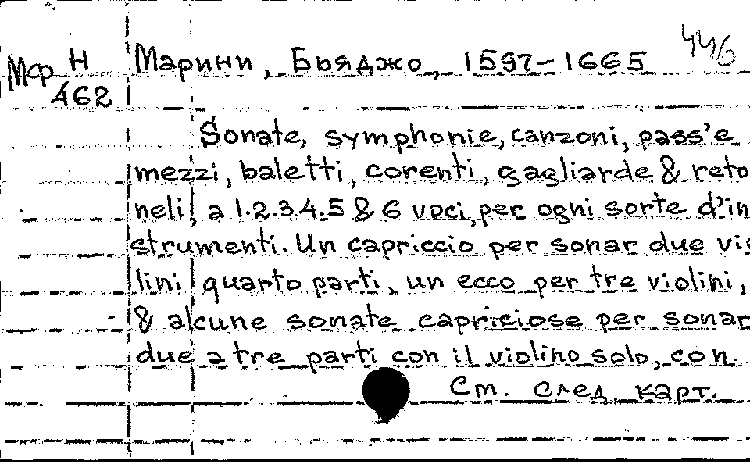 446
МФ Н Марини, Бьяджо, 1597-1665
462
Sonate, symphonie, canzoni, pass'e
mezzi, baletti, corenti, gagliarde & reto
neli, a 1.2.3.4.5 & 6 voci, per ogni sorte d'in
strumenti. Un capriccio per sonar due vio
lini quarto parti, un ecco per tre violini,
& alcune sonate capriciose per sonar
due a tre parti con il violino solo, con.
См. след. карт.